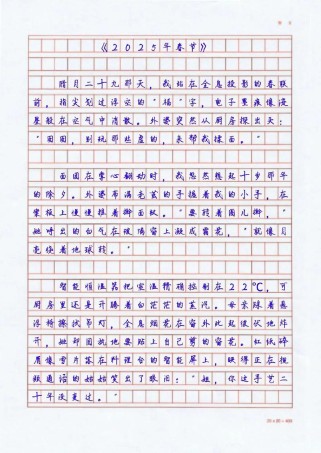 《2025年春节》
腊月二十九那天，我站在全息投影的春联
前，指尖划过浮空的“福”字，电子墨痕像流
星般在空气中消散。外婆突然从厨房探出头：
“囡囡，别玩那些虚的，来帮我揉面。”
面团在掌心翻动时，我忽然想起十岁那年
的除夕。外婆布满老茧的手握着我的小手，在
案板上慢慢推着擀面杖。“要转着圈儿擀，”
她呼出的白气在玻璃窗上凝成霜花，“就像月
亮绕着地球转。”
智能恒温器把室温精确控制在22℃，可
厨房里还是升腾着白茫茫的蒸汽。母亲踩着悬
浮椅擦拭吊灯，全息烟花在窗外此起彼伏地炸
开，她却固执地要贴上自己剪的窗花。红纸碎
屑像雪片落在料理台的智能屏上，映得正在视
频通话的姑姑笑出了眼泪：“姐，你这手艺二
十年没变过。”